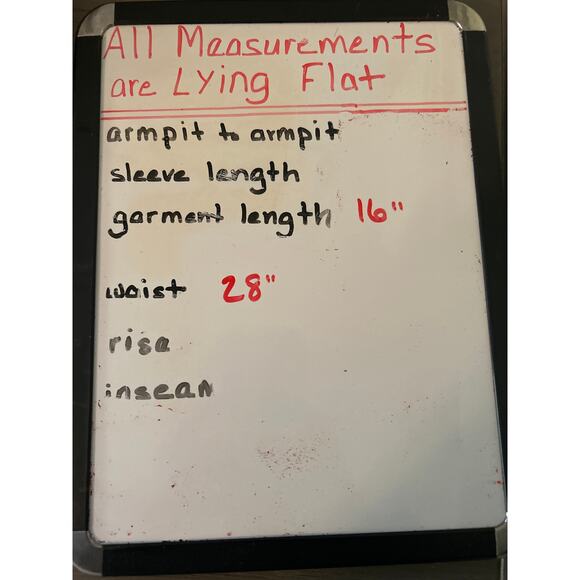 All Measurements
are Lying Flat
armpit to armpit
sleeve length
garment length 16"
waist 28"
rise
inseam